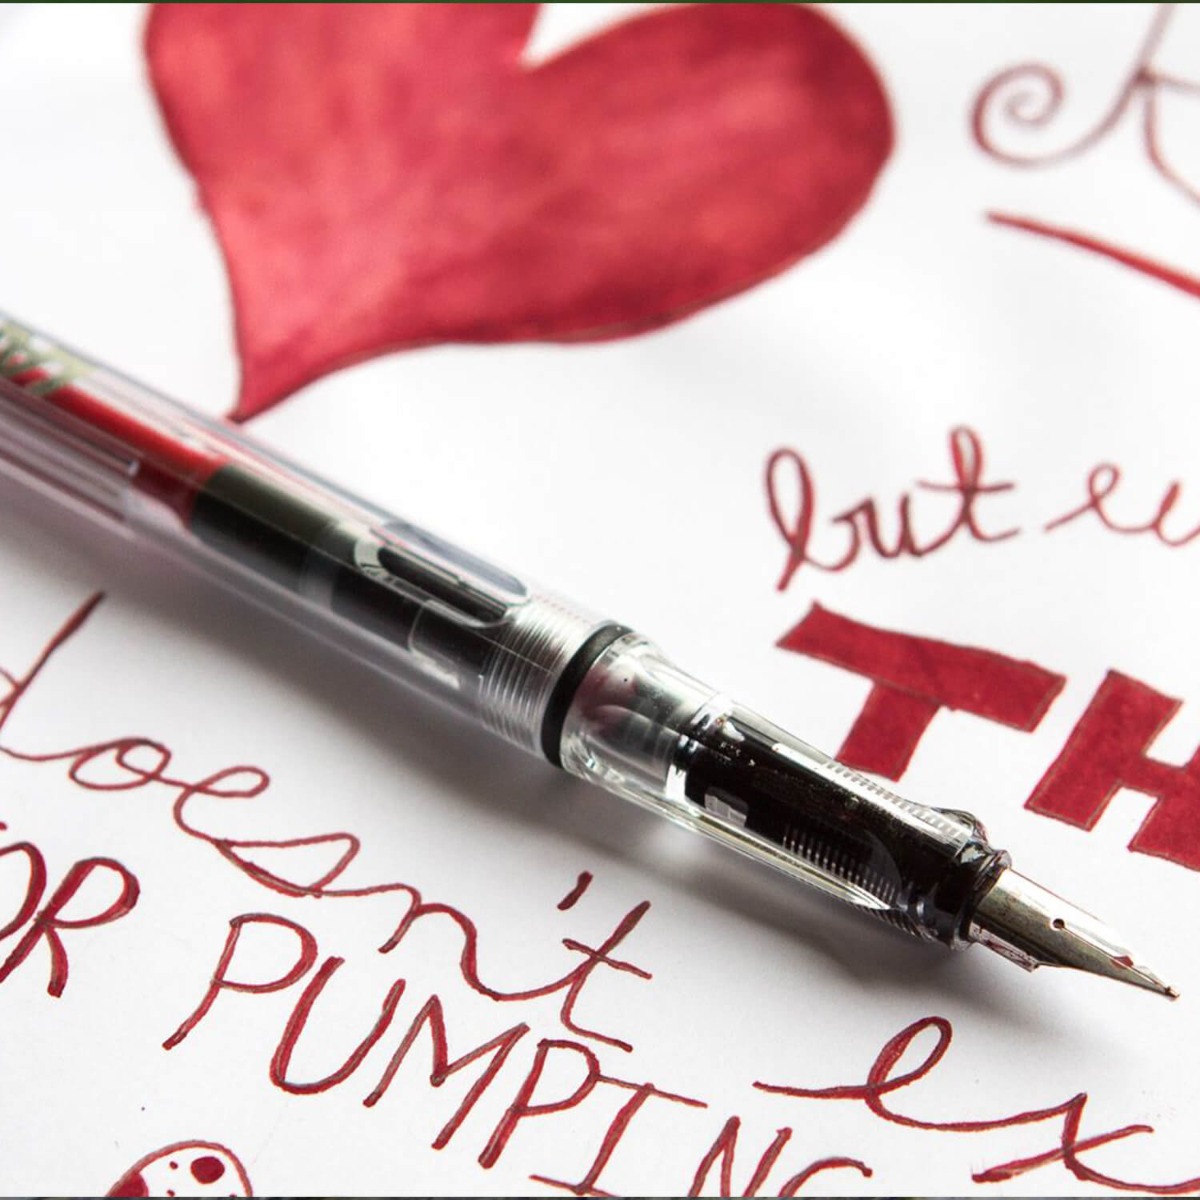 but
TH
doesn't ex
OR PUMPING